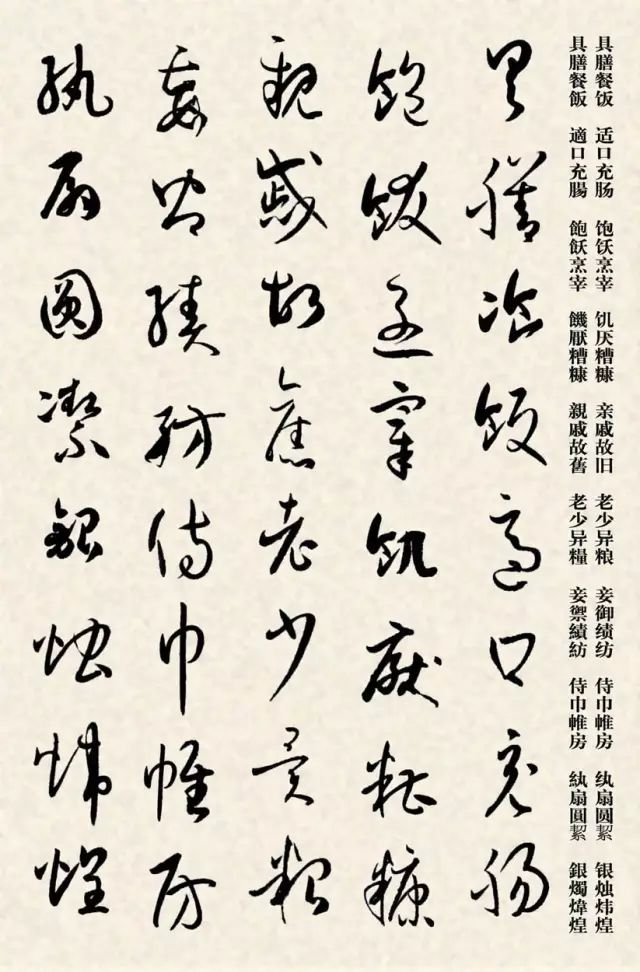 具膳餐饭 适口充肠 饱饫烹宰 饥厌糟糠 亲戚故旧 老少异粮 妾御绩纺 侍巾帷房 纨扇圆絜 银烛炜煌
具膳餐飯 適口充腸 飽飫烹宰 饑厭糟糠 親戚故舊 老少异糧 妾禦績紡 侍巾帷房 紈扇圓絜 銀燭煒煌
具膳飡飯適口充腸
飽飫烹宰飢厭糟糠
親戚故舊老少異糧
妾御績紡侍巾帷房
紈扇圓潔銀燭煒煌